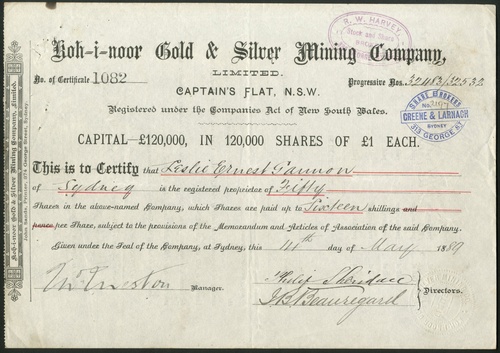 R. W. HARVEY
Stock and Share
Koh-i-noor Gold & Silver Mining Company,
LIMITED.
No. of Certificate 1082
Progressive Nos. 32483/32532
CAPTAIN'S FLAT, N.S.W.
Registered under the Companies Act of New South Wales.
SHARE BROKERS
GREENE & LARNACH
SYDNEY
313 GEORGE ST
CAPITAL—£120,000, IN 120,000 SHARES OF £1 EACH.
This is to Certify that Leslie Ernest Gannon
of Sydney is the registered proprietor of Fifty
Shares in the above-named Company, which Shares are paid up to Sixteen shillings and
pence per Share, subject to the provisions of the Memorandum and Articles of Association of the said Company.
Given under the Seal of the Company, at Sydney, this 14th day of May 1889
Manager.
Philip Sheridan
J B Beauregard
Directors.
Koh-i-noor Gold & Silver Mining Company, Limited.
John Sands, Printer, 374 George Street, Sydney.